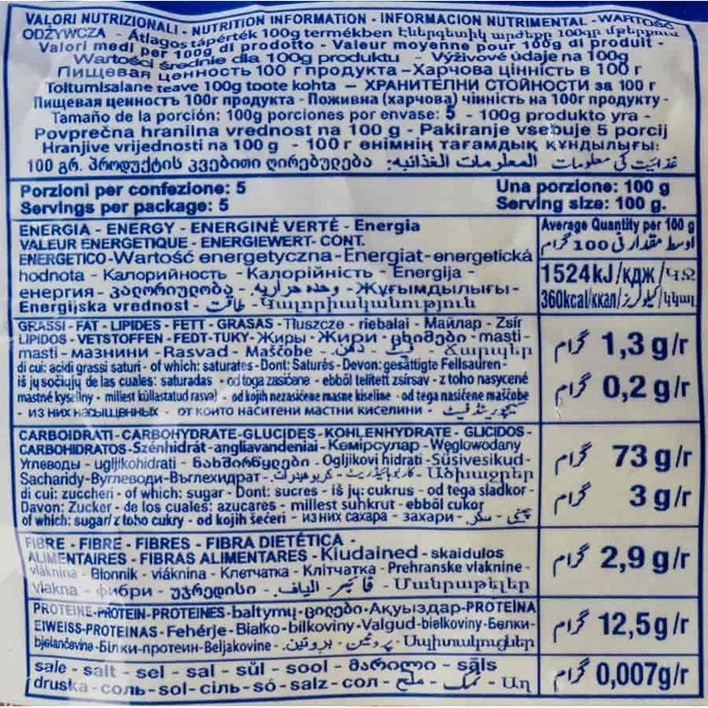 VALORI NUTRIZIONALI - NUTRITION INFORMATION - INFORMACION NUTRIMENTAL - WARTOŚĆ
ODŻYWCZA - Átlagos tápérték 100g termékben
Valori medi per 100g di prodotto - Valeur moyenne pour 100g di produit -
Wartości średnie dla 100g produktu - Výživové údaje na 100g
Пищевая ценность 100 г продукта - Харчова цінність в 100 г
Toitumisalane teave 100g toote kohta - ХРАНИТЕЛНИ СТОЙНОСТИ за 100 г
Пищевая ценность 100г продукта - Поживна (харчова) чінність на 100г продукту -
Tamaño de la porción: 100g porciones por envase: 5 - 100g produkto yra -
Povprečna hranilna vrednost na 100 g - Pakiranje vsebuje 5 porcij
Hranjive vrijednosti na 100 g - 100 г өнімнің тағамдық құндылығы:
100 გრ. პროდუქტის კვებითი ღირებულება المعلومات الغذائية: غذائیت کی معلومات
Porzioni per confezione: 5 Una porzione: 100 g
Servings per package: 5 Serving size: 100 g.
ENERGIA - ENERGY - ENERGINÉ VERTÉ - Energia Average Quantity per 100 g
VALEUR ENERGETIQUE - ENERGIEWERT- CONT. اوسط مقدار فی 100 گرام
ENERGETICO-Wartość energetyczna-Energiat-energetická
hodnota - Калорийность - Калорійність - Energija - 1524kJ/кДж/կՋ
енергия - ენერგიულობა - وحده حرارية - Жұғымдылығы -
Energijska vrednost - طاقت - Կալորիականություն 360kcal/ккал/کیلوکلوریز/կկալ
GRASSI - FAT - LIPIDES - FETT - GRASAS - Tłuszcze - riebalai - Майлар - Zsír
LIPIDOS - VETSTOFFEN -FEDT-TUKY-Жиры-Жири-ცხიმები-masti- گرام 1,3 g/r
masti - мазнини - Rasvad - Maščobe - Ճարպեր
di cui: acidi grassi saturi - of which: saturates - Dont: Saturés - Devon: gesättigte Fellsäuren -
iš jų sočiųjų de las cuales: saturadas - od toga zasićene - ebből telített zsírsav - z toho nasycené گرام 0,2 g/r
mastné kyseliny - millest küllastatud rasval - od kojih nezasićene masne kiseline - od tega nasičene maščobe
- из них насыщенных - от които наситени мастни киселини -
CARBOIDRATI-CARBOHYDRATE-GLUCIDES-KOHLENHYDRATE - GLICIDOS-
CARBOHIDRATOS-Szénhidrát-angliavandeniai-Көмірсулар-Węglowodany
Углеводы - ugljikohidrati - ნახშირწყლები - Ogljikovi hidrati -Süsivesikud- گرام 73 g/r
Sacharidy-Вуглеводи-Въглехидрат - کاربوہائیڈریٹ - كربوهيدرات - Ածխաջրեր
di cui: zuccheri - of which: sugar - Dont: sucres - iš jų: cukrus - od tega sladkor - گرام 3 g/r
Davon: Zucker - de los cuales: azucares - millest suhkrut - ebből cukor
of which: sugar/z toho cukry - od kojih šećeri - из них сахара - захари - سكر - چینی
FIBRE - FIBRE - FIBRES - FIBRA DIETÉTICA -
ALIMENTAIRES - FIBRAS ALIMENTARES - Kiudained - skaidulos
vláknina - Błonnik - vláknina - Клетчатка - Клітчатка - Prehranske vlaknine - گرام 2,9 g/r
vlakna - фибри - უჯრედისი - الياف - فائبر - Մանրաթելեր
PROTEINE-PROTEIN-PROTEINES-baltymų-ცილები-Ақуыздар-PROTEÍNA
EIWEISS-PROTEINAS-Fehérje-Białko-bílkoviny-Valgud-bielkoviny-Белки- گرام 12,5g/r
bjelančevine-Білки-протеин-Beljakovine - بروتين - پروٹین - Սպիտակուցներ
sale - salt - sel - sal - sűl - sool - მარილი - sāls گرام 0,007g/r
druska - соль - sol - сіль - só - salz - сол - ملح - نمک - Աղ